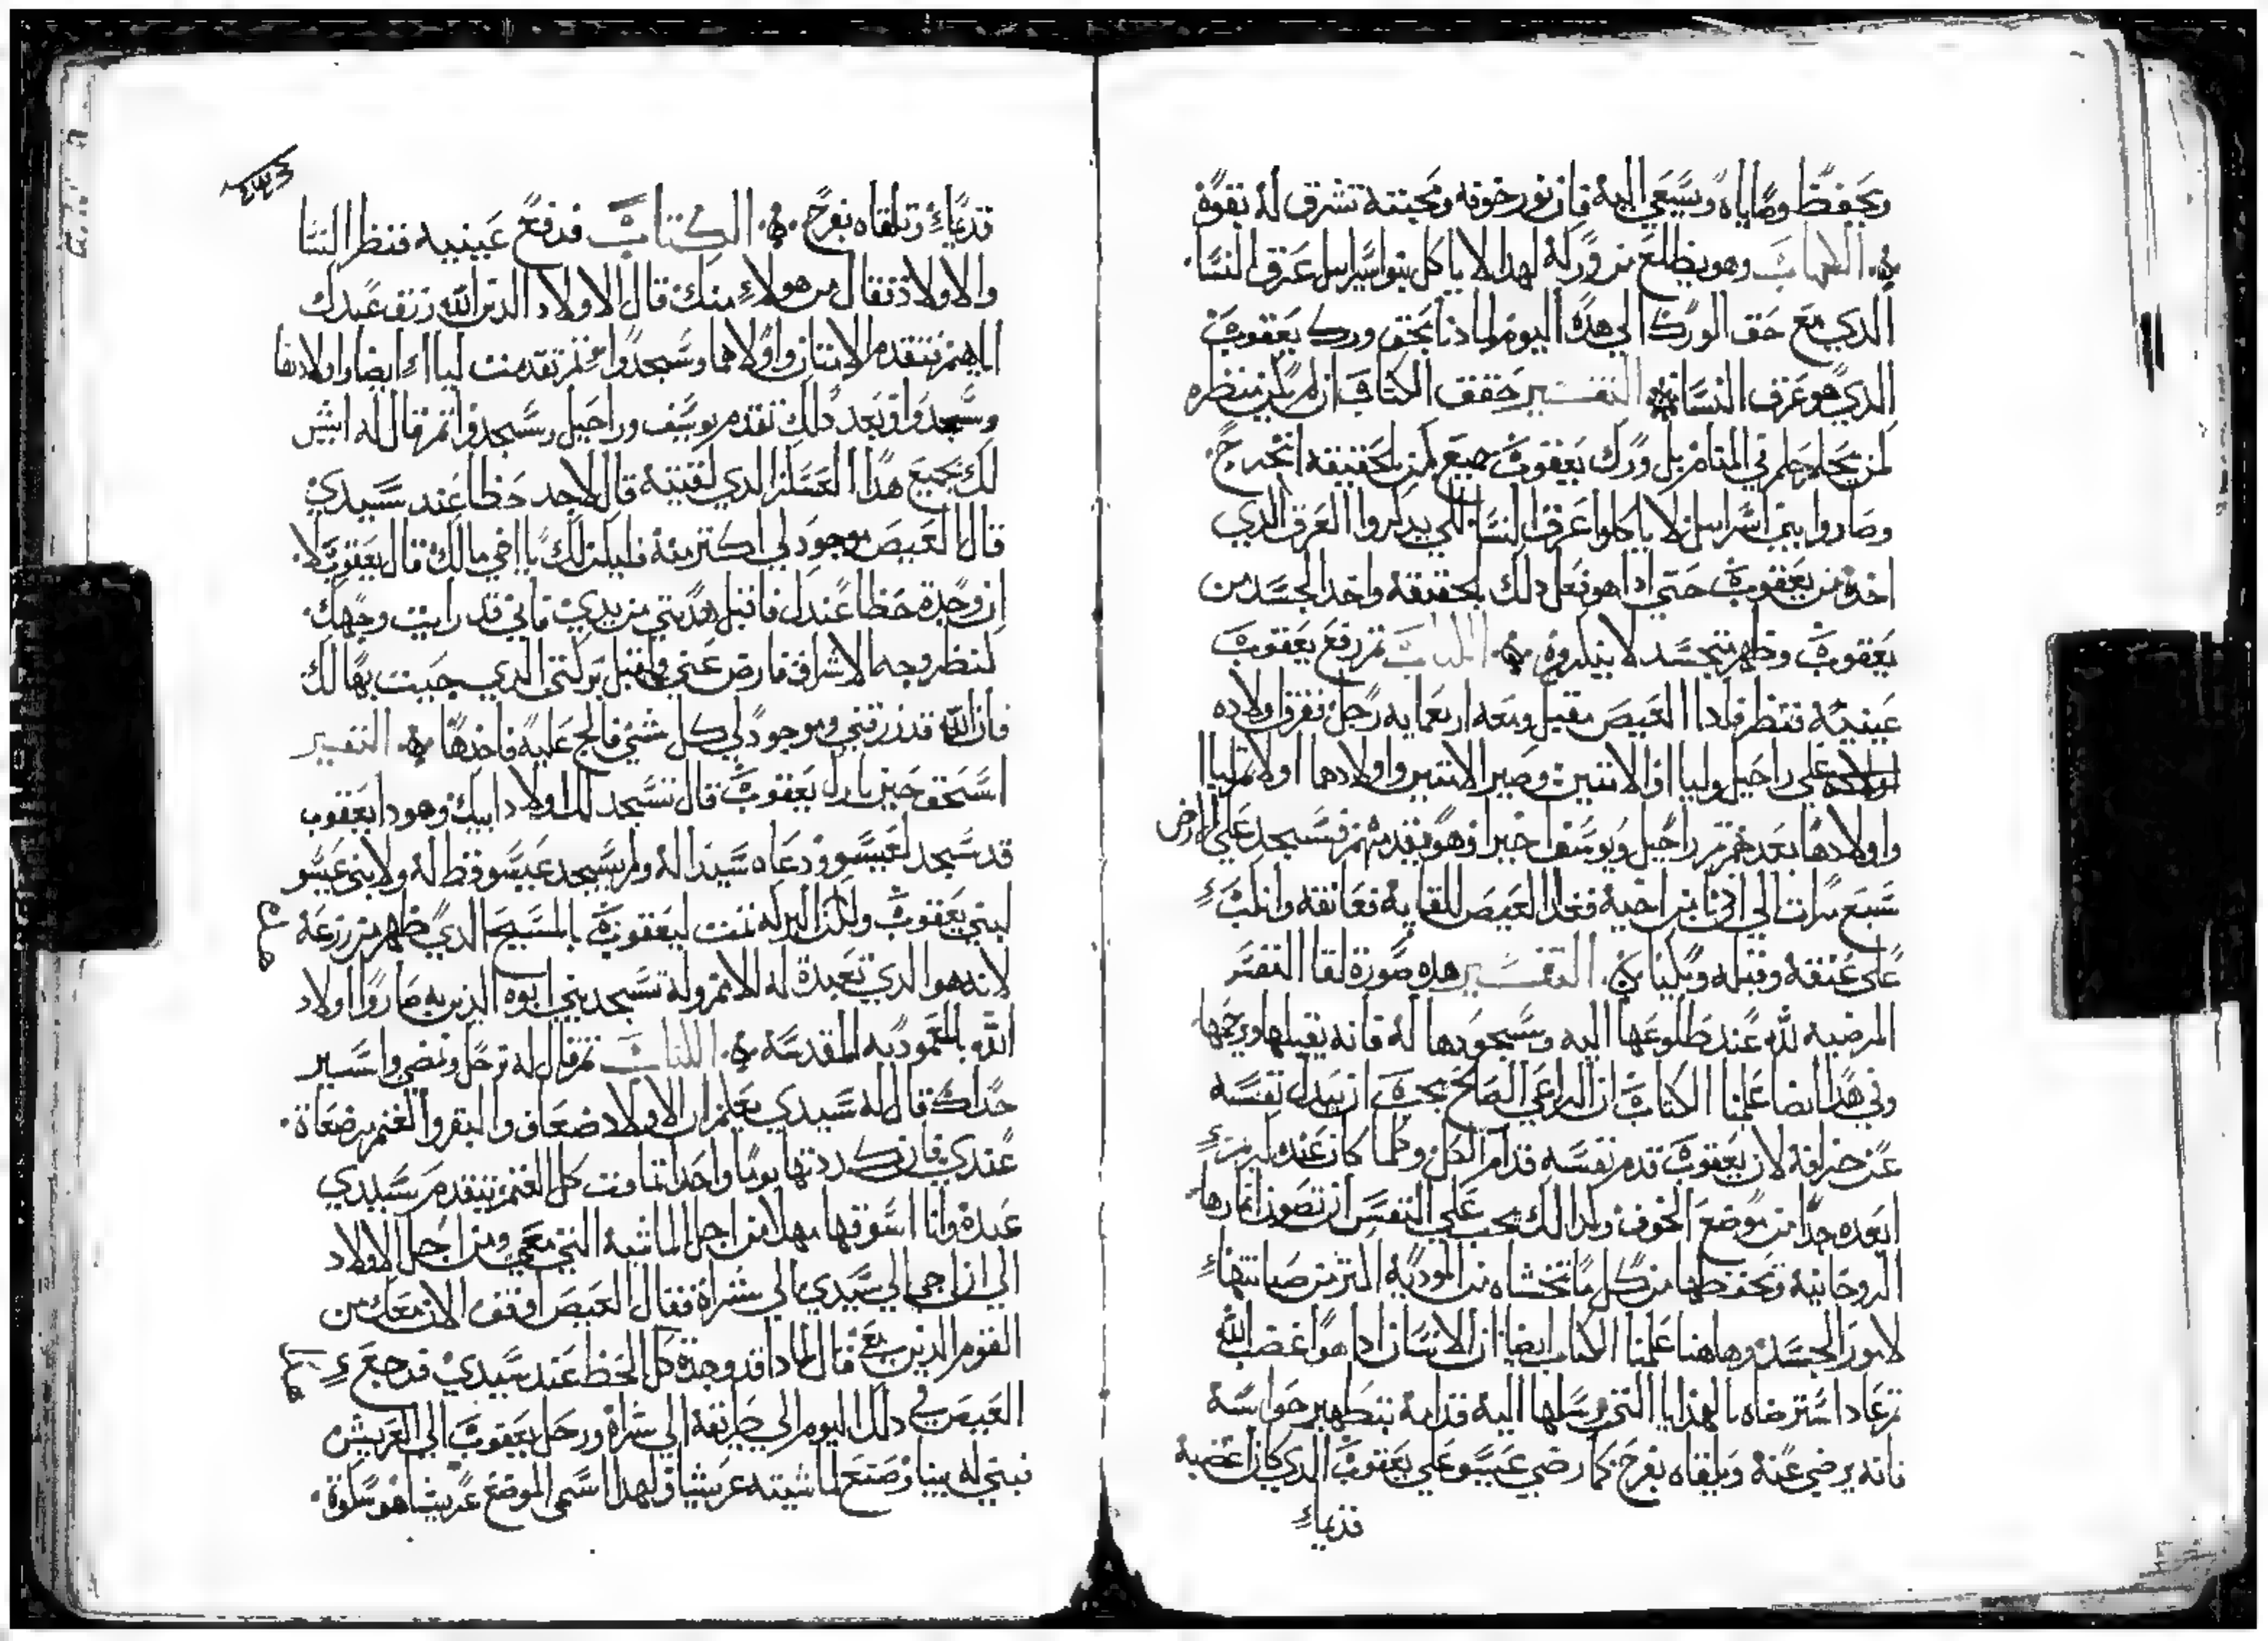 ويحفظ وصاياه ويسعى اليه فان نور خوفه ومحبته تشرق له بقوة
الكتاب وهو يظلع من وركه لهدا لا ياكل بنوا اسراييل عرق النسا
الدي مع حق الورك الي هدا اليوم لمادنا بحق ورك يعقوب
الدي هو عرق النسا التفسير حقق الكتاب ان لم يكن منظره
لمن يحله حلم في المنام بل ورك يعقوب جمع من بالحقيقه انخرج
وصاروا بني اسراييل لا ياكلوا عرق النسا لكي يدكروا العرق الدي
اخده من يعقوب حتي اداهو فعل دلك بحقيقة واخد الجسد من
يعقوب وظهر متجسد لا ينكروه الكتاب ثم رفع يعقوب
عينيه فنظر فادا العيص مقبل ومعه اربعمايه رجل ففرق اولاده
علي راحيل وليا او الاتنتين وصير الاتنتين واولادها اولا ثم ليا
واولادها بعدهم ثم راحيل ويوسف اخيرا وهو تقدمهم فسجد علي الارض
سبع مرات الي ان دنا من اخيه فغدا العيص للقايه فعانقه وانكب
علي عنقه وقبله وبكيا التفسير هده صورة لقا النفس
المرضيه لله عند طلوعها اليه وسجودها له فانه يقبلها ويرحمها
وفي هدا ايضا علمنا الكتاب ان الراعي الصالح يجب ان يبدل نفسه
عن خرافه لان يعقوب قدم نفسه قدام الكل وكلما كان عنده
ابعده جدا من موضع الخوف وكدالك يجب علي النفس ان تصون اتمارها
الروحانية وتحفظها من كل ما تخشاه من المودية اكتر من صيانتها
لامور الجسد وهاهنا علمنا الكتاب ايضا ان الانسان ادا هو اغضب الله
تم عاد استرضاه بالهدايا التي يرسلها اليه قدامه بتطهير حواسه
فانه يرضي عنه ويلقاه بفرح كما رضي عيسو علي يعقوب الدي كان اغضبه
قديما
قديما وتلقاه بفرح الكتاب فرفع عينيه فنظر النسا
والاولاد فقال من هولاء منك قال الاولاد الدين الله رزق عبدك
اللهم فتقدم الاتنتان واولادهما وسجدوا ثم تقدمت ليا ايضا واولادها
وسجدوا وبعد دلك تقدم يوسف وراحيل وسجدوا ثم قال له ايش
لك بجميع هدا العسكر الدي لقيته قال لاجد حظا عند سيدي
قال العيص موجود لي اكتر منه فليكن لك يا اخي مالك قال يعقوب لا
ان وجدة حظا عندك فاقبل هديتي من يدي فاني قد رايت وجهك
كنظر وجه الاشراف فارض عني واقبل بركتي الدي جيت بها لك
فان الله قد رزقني وموجود لي كل شئ فالح عليه فاخدها التفسير
اسحق حين بارك يعقوب قال تسجد لك اولاد ابيك وهودا يعقوب
قد سجد لعيسو ودعاه سيدا له ولم يسجد عيسو قط له ولا بني عيسو
لبني يعقوب ولكن البركه تمت ليعقوب بالمسيح الدي ظهر من زرعه
لانه هو الدي تعبدة له الامم وله تسجد بني ابوه الدين به صاروا اولاد
الله بالمعموديه المقدسة الكتاب ثم قال له نرحل ونمضي واسير
حداك قال له سيدي يعلم ان الاولاد ضعاف والبقر والغنم مرضعاة
عندي فان كددتها يوما واحدا تماوت كل الغنم يتقدم سيدي
عبده وانا اسوقها مهلا من اجل الماشية التي معي ومن اجل الاولاد
الي ان اجي الي سيدي الي شراة فقال العيص اوقف الان معك من
القوم الدين معي قال لمادا قد وجدة كل الحظ عند سيدي فرجع
العيص في دلك اليوم الي طريقه الي شراة ورحل يعقوب الي العريش
فبني له بيتا وصنع لماشيته عريشا ولهدا اسمي الموضع عريشا هو سلوة